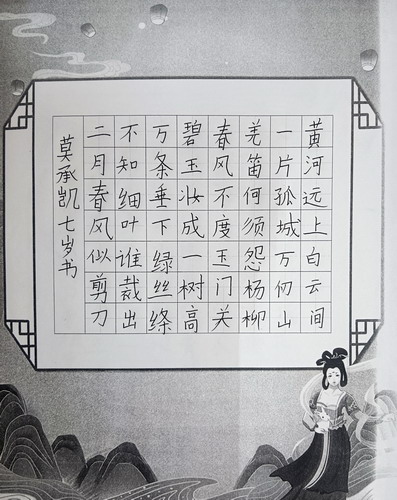 黄河远上白云间
一片孤城万仞山
羌笛何须怨杨柳
春风不度玉门关
碧玉妆成一树高
万条垂下绿丝绦
不知细叶谁裁出
二月春风似剪刀
莫承凯七岁书